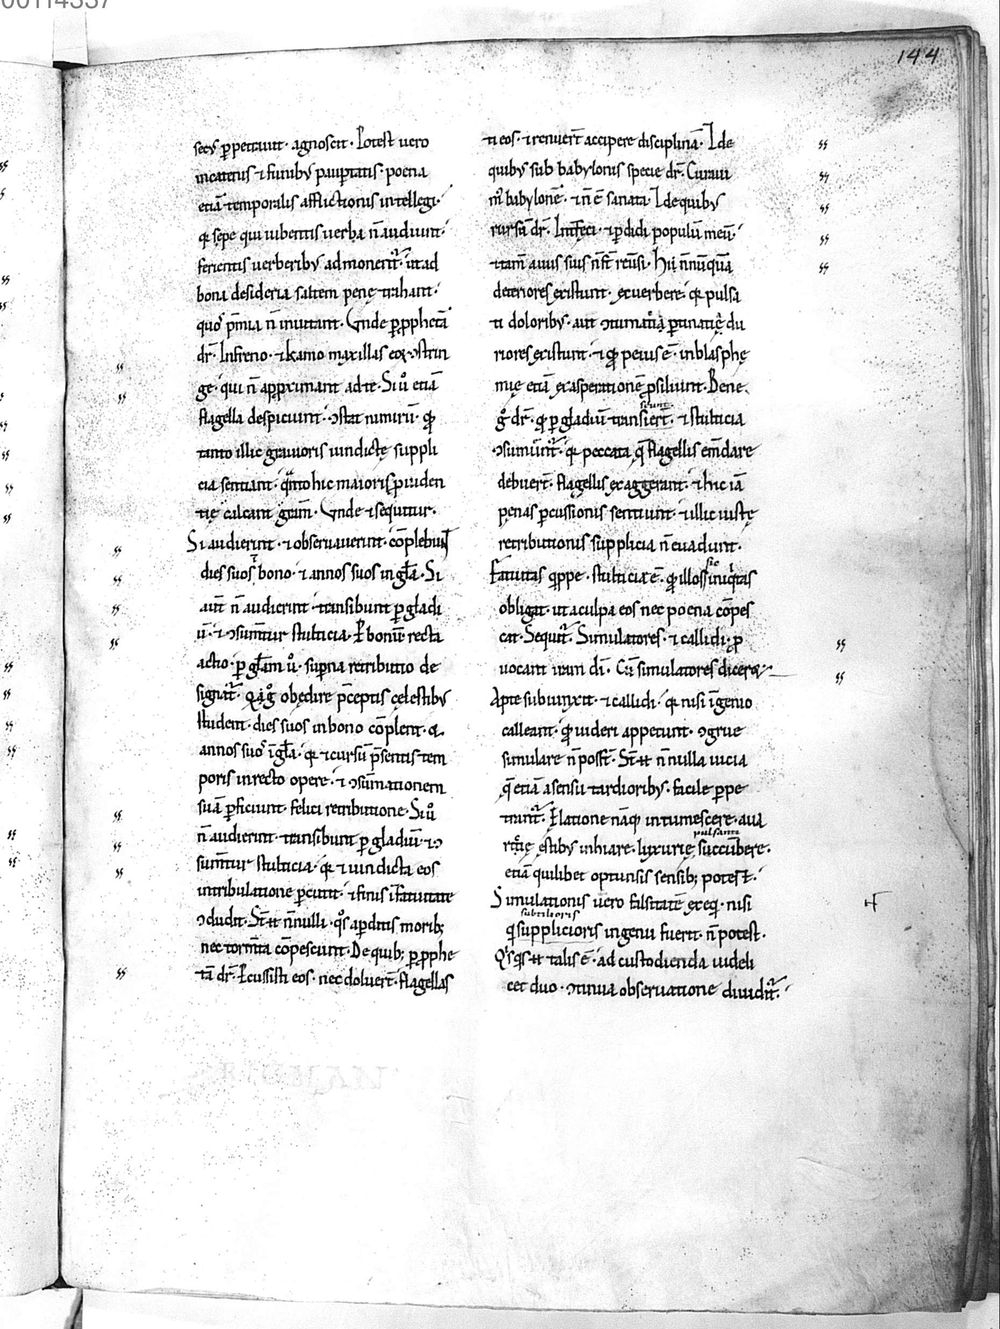 144
secꝰ ꝑpetrauit · agnoscit · Potest uero
in catenis ⁊ funibꝰ pauꝑtatis · poena
etiā temporalis afflictionis intellegi ·
q̇ sepe qui iubentis uerba n̄ audiunt ·
ferientis uerberibꝰ admonent᷑ · ut ad
bona desideria saltem penę trahant ·
quoˢ p̄mia n̄ inuitant · Vnde ꝑ ꝓphetā
dr̄ · In freno · ⁊ kamo maxillas eoꝝ ↄstrin
ge · qui n̄ approximant ad te · Si ů etiā
flagella despiciunt · ↄstat nimirū · qđ
tanto illic grauioris uindictę suppli
cia sentiant · q̄nto hic maioris ꝓuiden
tię calcant gr̄am · Vnde ⁊ sequitur ·
Si audierint · ⁊ obseruauerint · cōplebunt
dies suos bono · ⁊ annos suos in gl̄a · Si
aut̄ n̄ audierint · transibunt ꝑ gladi
ū · ⁊ ↄsumēt᷑ stulticia · P bonū recta
actio · ꝑ gl̄am ů · supna retributio de
signat᷑ · Qui g̊ obędire p̄ceptis cęlestibꝰ
student · dies suos in bono cōplent · ⁊
annos suoˢ ī gl̄a · q̇ ⁊ cursū p̄sentis tem
poris in recto opere · ⁊ ↄsūmationem
suā ꝑficiunt · felici retributione · Si ů
n̄ audierint · transibunt ꝑ gladiū · ⁊ ↄ
sumentur stulticia · q̇ ⁊ uindicta eos
in tribulatione ꝑcutit · ⁊ finis ī fatuitate
ↄcludit · St̄ ħ n̄nulli · qͦs a ꝑditis morib;
nec torm̄ta cōpescunt · De quib; ꝑ ꝓphe
tā dr̄ · Percussisti eos · nec doluer̄t · flagellas
ti eos · ⁊ renuer̄t accipere disciplinā · I de
quibꝰ sub babylonis specie dr̄ · Curaui
mꝰ babylonē · ⁊ n̄ ē sanata · I de quibꝰ
rursū dr̄ · Interfeci · ⁊ ꝑdidi populū meū ·
⁊ tam̄ a uiis suis n̄ st̄ reūsi · Hii n̄nūquā
deteriores existunt · ex uerbere · q̇ pulsa
ti doloribꝰ · aut ↄtumatia ꝑtinatię du
riores existunt · ⁊ qđ peius ē · in blasphę
mię etiā exasperationē ꝓsiliunt · Bene
g̊ dr̄ · qđ ꝑ gladiū transiert · ⁊ stulticia
ↄsumunt᷑ · q̇ peccata q̄ flagellis em̄dare
debuer̄t · flagellis exaggerant · ⁊ hic iā
pęnas ꝑcussionis sentiunt · ⁊ illic iustę
retributionis supplicia n̄ euadunt ·
Fatuitas q̇ppe · stulticia ē · qđ illos sic iniq̇tas
obligat · ut a culpa eos nec poena cōpes
cat · Sequit᷑ · Simulatores · ⁊ callidi · ꝓ
uocant iram dī · Cū simulatores diceret ·
Apte subiunxit · ⁊ callidi · q̇ nisi īgenio
calleant · qđ uideri appetunt · ↄgrue
simulare n̄ poss̄t · St̄ ħ n̄nulla uicia
q̄ etiā a sensu tardioribꝰ · facile ꝑpe
trant᷑ · Elatione nāq̄ intumescere · aua
ritię ęstibꝰ inhiare · luxurię succūbere ·
pulsanti
etiā quilibet optunsis sensib; potest ·
Simulationis uero falsitatē exeq̇ · nisi
subtilioris
q̇ supplicioris ingenii fuerit · n̄ potest ·
Qͥsqͥs ħ talis ē · ad custodienda uideli
cet duo · ↄtinua obseruatione diuidit᷑ ·